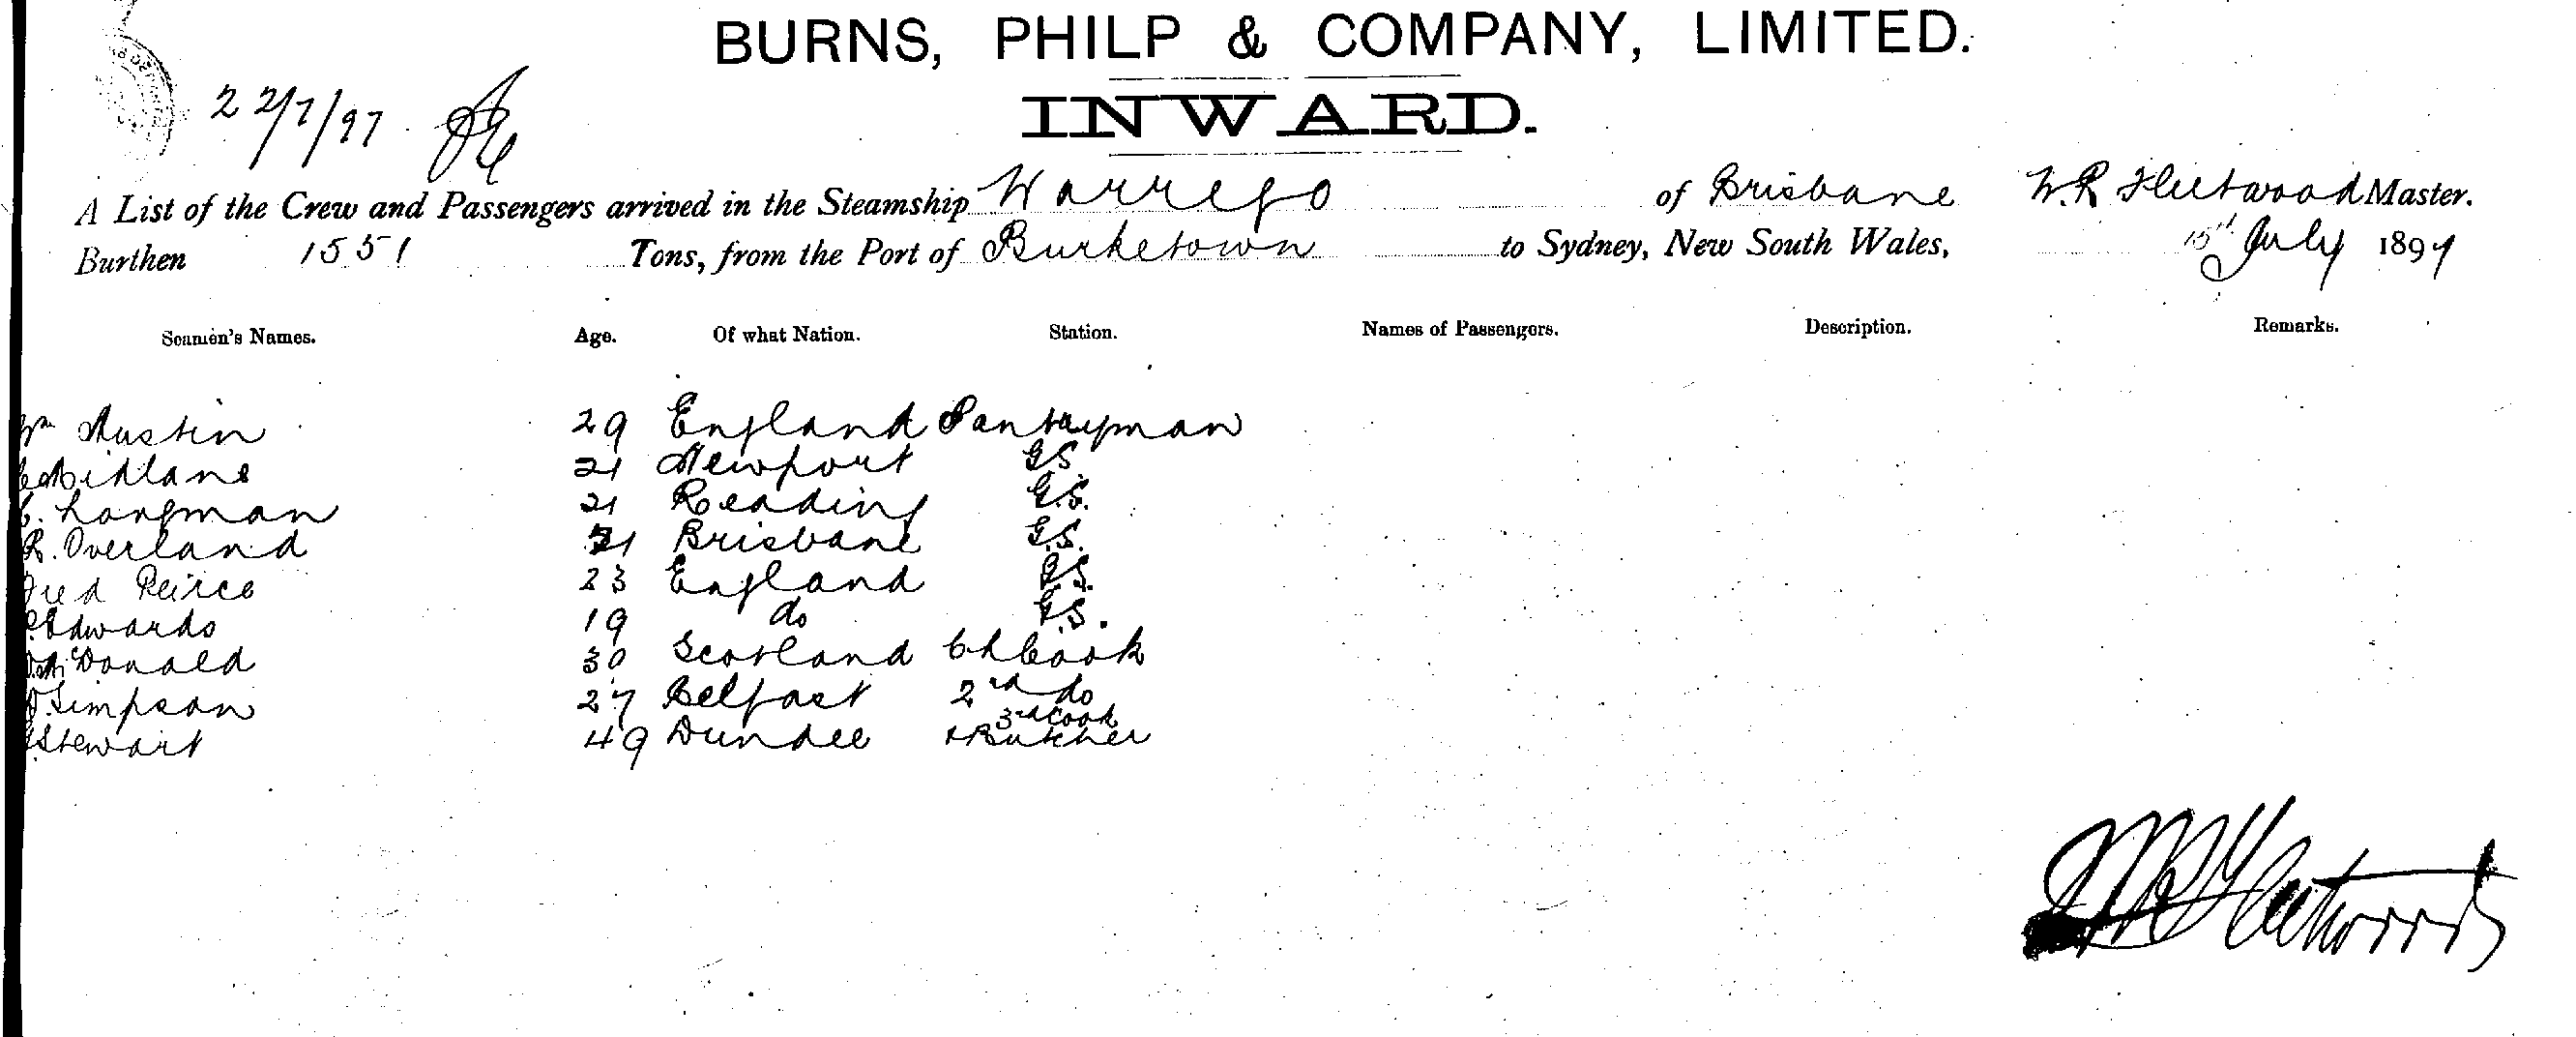 BURNS, PHILP & COMPANY, LIMITED.
INWARD.
22/7/97
A List of the Crew and Passengers arrived in the Steamship Warrego of Brisbane W.R Fleetwood Master.
Burthen 1551 Tons, from the Port of Burketown to Sydney, New South Wales, 15th July 1897
Seamen's Names. Age. Of what Nation. Station. Names of Passengers. Description. Remarks.
Wm Austin 29 England Pantryman
Midlane 21 Newport G.S.
C. Longman 21 Reading G.S.
R. Overland 21 Brisbane G.S.
Fred Peirce 23 England G.S.
Edwards 19 do G.S.
McDonald 30 Scotland Ch Cook
Simpson 27 Belfast 2nd do
Stewart 49 Dundee 3rd Cook + Butcher
WR Fleetwood